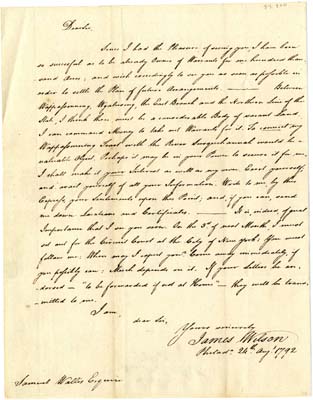 Dear Sir,
Since I had the Pleasure of seeing you, I have been
so successful as to be already Owner of Warrants for one hundred thou-
sand Acres; and wish exceedingly to see you as soon as possible in
order to settle the Plan of future Arrangements. Between
Wappassening, Wyalusing, the East Branch and the Northern Line of the
State, I think there must be a considerable Body of vacant Land.
I can command Money to take out Warrants for it. To connect my
Wappassening Tract with the River Susquehannah would be
valuable Object. Perhaps it may be in your Power to secure it for me.
I shall make it your Interest as well as my own. Exert yourself;
and avail yourself of all your Information. Write to me by the
Express your Sentiments upon this Point; and, if you can, send
me down Locations and Certificates. It is, indeed, of great
Importance that I see you soon. On the 3d of next Month, I must
set out for the Circuit Court at the City of New York. You must
follow me. When may I expect you? Come away immediately, if
you possibly can: Much depends on it. If your Letters be en-
dorsed "to be forwarded if not at Home" they will be trans-
mitted to me.
I am
dear Sir,
Yours sincerely
James Wilson
Philada. 24th Augt 1792
Samuel Wallis Esquire